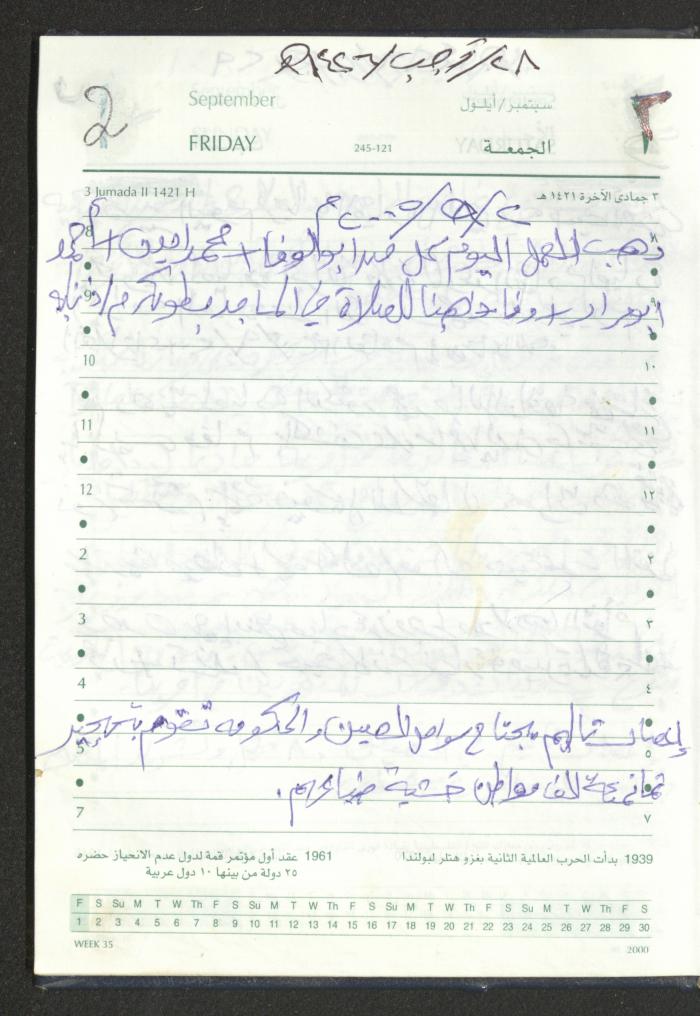 ٢٨/رجب/١٤٢٦هـ
2
September
سبتمبر/أيلول
٢
FRIDAY
245-121
الجمعة
3 Jumada II 1421 H
٣ جمادى الآخرة ١٤٢١ هـ
٢/٩/٢٠٠٥م
8 ذهب للعمل اليوم كل من ابوالوفا + محمد امين + أحمد ٨
9 ابو مراد + وفا وذهبنا للصلاة في المساجد ٩
10 ١٠
11 ١١
12 ١٢
2 ٢
3 ٣
4 ٤
5 إعصار تاليم يجتاح سواحل الصين والحكومه تقوم بتهجير ٥
ثمانمئة الف مواطن خشية ضياعهم.
7 ٧
1939 بدأت الحرب العالمية الثانية بغزو هتلر لبولندا
1961 عقد أول مؤتمر قمة لدول عدم الانحياز حضره
٢٥ دولة من بينها ١٠ دول عربية
F S Su M T W Th F S Su M T W Th F S Su M T W Th F S Su M T W Th F S
1 2 3 4 5 6 7 8 9 10 11 12 13 14 15 16 17 18 19 20 21 22 23 24 25 26 27 28 29 30
WEEK 35
2000